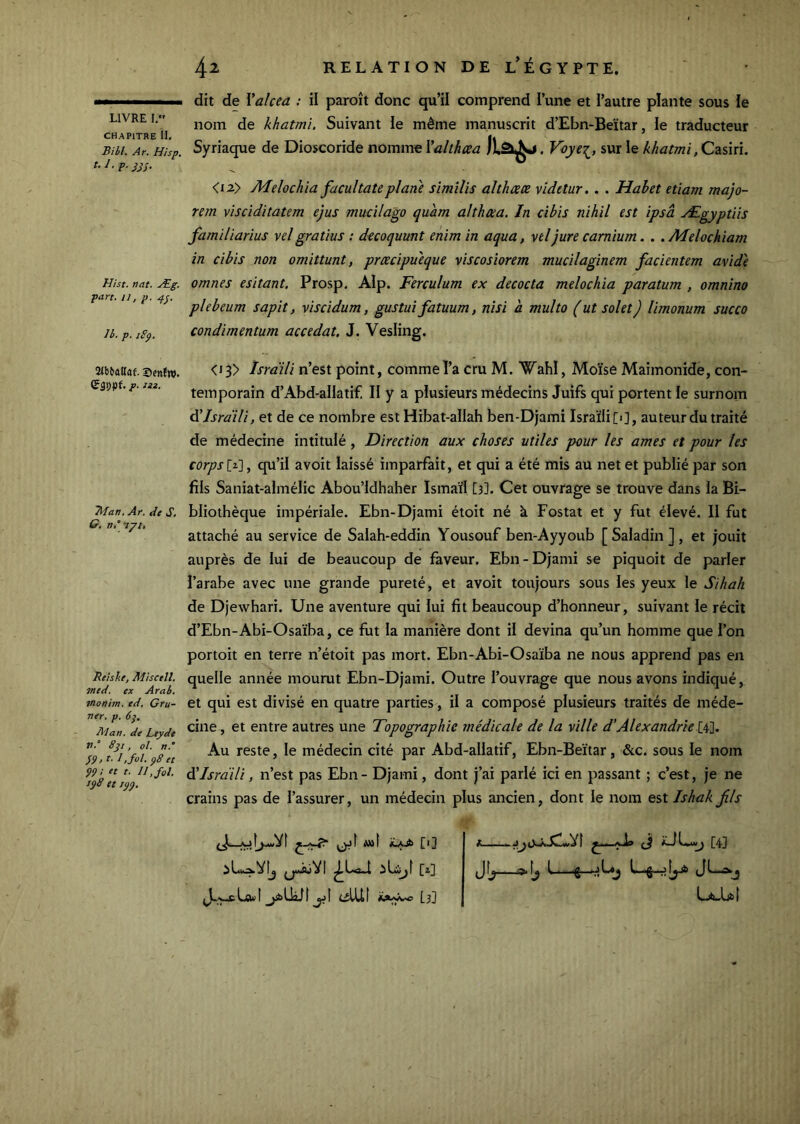 42 RELATION DE L'ÉGYPTE.
LIVRE I.er
CHAPITRE II.
Bibl. Ar. Hisp.
t. I. p. 335.
dit de l'alcea : il paroît donc qu'il comprend l'une et l'autre plante sous le
nom de khatmi. Suivant le même manuscrit d'Ebn-Beïtar, le traducteur
Syriaque de Dioscoride nomme l'althæa. Voyez, sur le khatmi, Casiri.
<12> Melochia facultate planè similis althææ videtur. . . Habet etiam majo-
rem visciditatem ejus mucilago quàm althæa. In cibis nihil est ipsâ Ægyptiis
familiarius vel gratius : decoquunt enim in aqua, vel jure carnium. . . Melochiam
in cibis non omittunt, præcipuèque viscosiorem mucilaginem facientem avidè
Hist. nat. Æg.
part. II, p. 45.
omnes esitant. Prosp. Alp. Ferculum ex decocta melochia paratum, omnino
plebeum sapit, viscidum, gustui fatuum, nisi à multo (ut solet) limonum succo
Ib. p. 189.
condimentum accedat. J. Vesling.
Abdallat. Denkw.
Egypt. p. 122.
<13> Israïli n'est point, comme l'a cru M. Wahl, Moïse Maimonide, con-
temporain d'Abd-allatif. Il y a plusieurs médecins Juifs qui portent le surnom
d'Israïli, et de ce nombre est Hibat-allah ben-Djami Israïli [1], auteur du traité
de médecine intitulé, Direction aux choses utiles pour les ames et pour les
corps [2], qu'il avoit laissé imparfait, et qui a été mis au net et publié par son
fils Saniat-almélic Abou'ldhaher Ismaïl [3]. Cet ouvrage se trouve dans la Bi-
Man. Ar. de S.
G. n.°
bliothèque impériale. Ebn-Djami étoit né à Fostat et y fut élevé. Il fut
attaché au service de Salah-eddin Yousouf ben-Ayyoub [ Saladin ], et jouit
auprès de lui de beaucoup de faveur. Ebn-Djami se piquoit de parler
l'arabe avec une grande pureté, et avoit toujours sous les yeux le Sihah
de Djewhari. Une aventure qui lui fit beaucoup d'honneur, suivant le récit
d'Ebn-Abi-Osaïba, ce fut la manière dont il devina qu'un homme que l'on
portoit en terre n'étoit pas mort. Ebn-Abi-Osaïba ne nous apprend pas en
Reiske, Miscell.
med. ex Arab.
monim. ed. Gru-
ner. p. 63.
Man. de Leyde
n.° 831, ol. n.°
59, t. I, fol. 98 et
99; et t. II, fol.
198 et 199.
quelle année mourut Ebn-Djami. Outre l'ouvrage que nous avons indiqué,
et qui est divisé en quatre parties, il a composé plusieurs traités de méde-
cine, et entre autres une Topographie médicale de la ville d'Alexandrie [4].
Au reste, le médecin cité par Abd-allatif, Ebn-Beïtar, &c. sous le nom
d'Israïli, n'est pas Ebn-Djami, dont j'ai parlé ici en passant ; c'est, je ne
crains pas de l'assurer, un médecin plus ancien, dont le nom est Ishak fils
[1] هبة الله ابن جميع الاسرايلى
[2] ارشاد لمصالح الانفس والاجساد
[3] صنيعة الملك ابو الظاهر اسماعيل
[4] رسالة فى طبع الاسكندرية
وحال هوايها ومياهها واحوال
اهلها